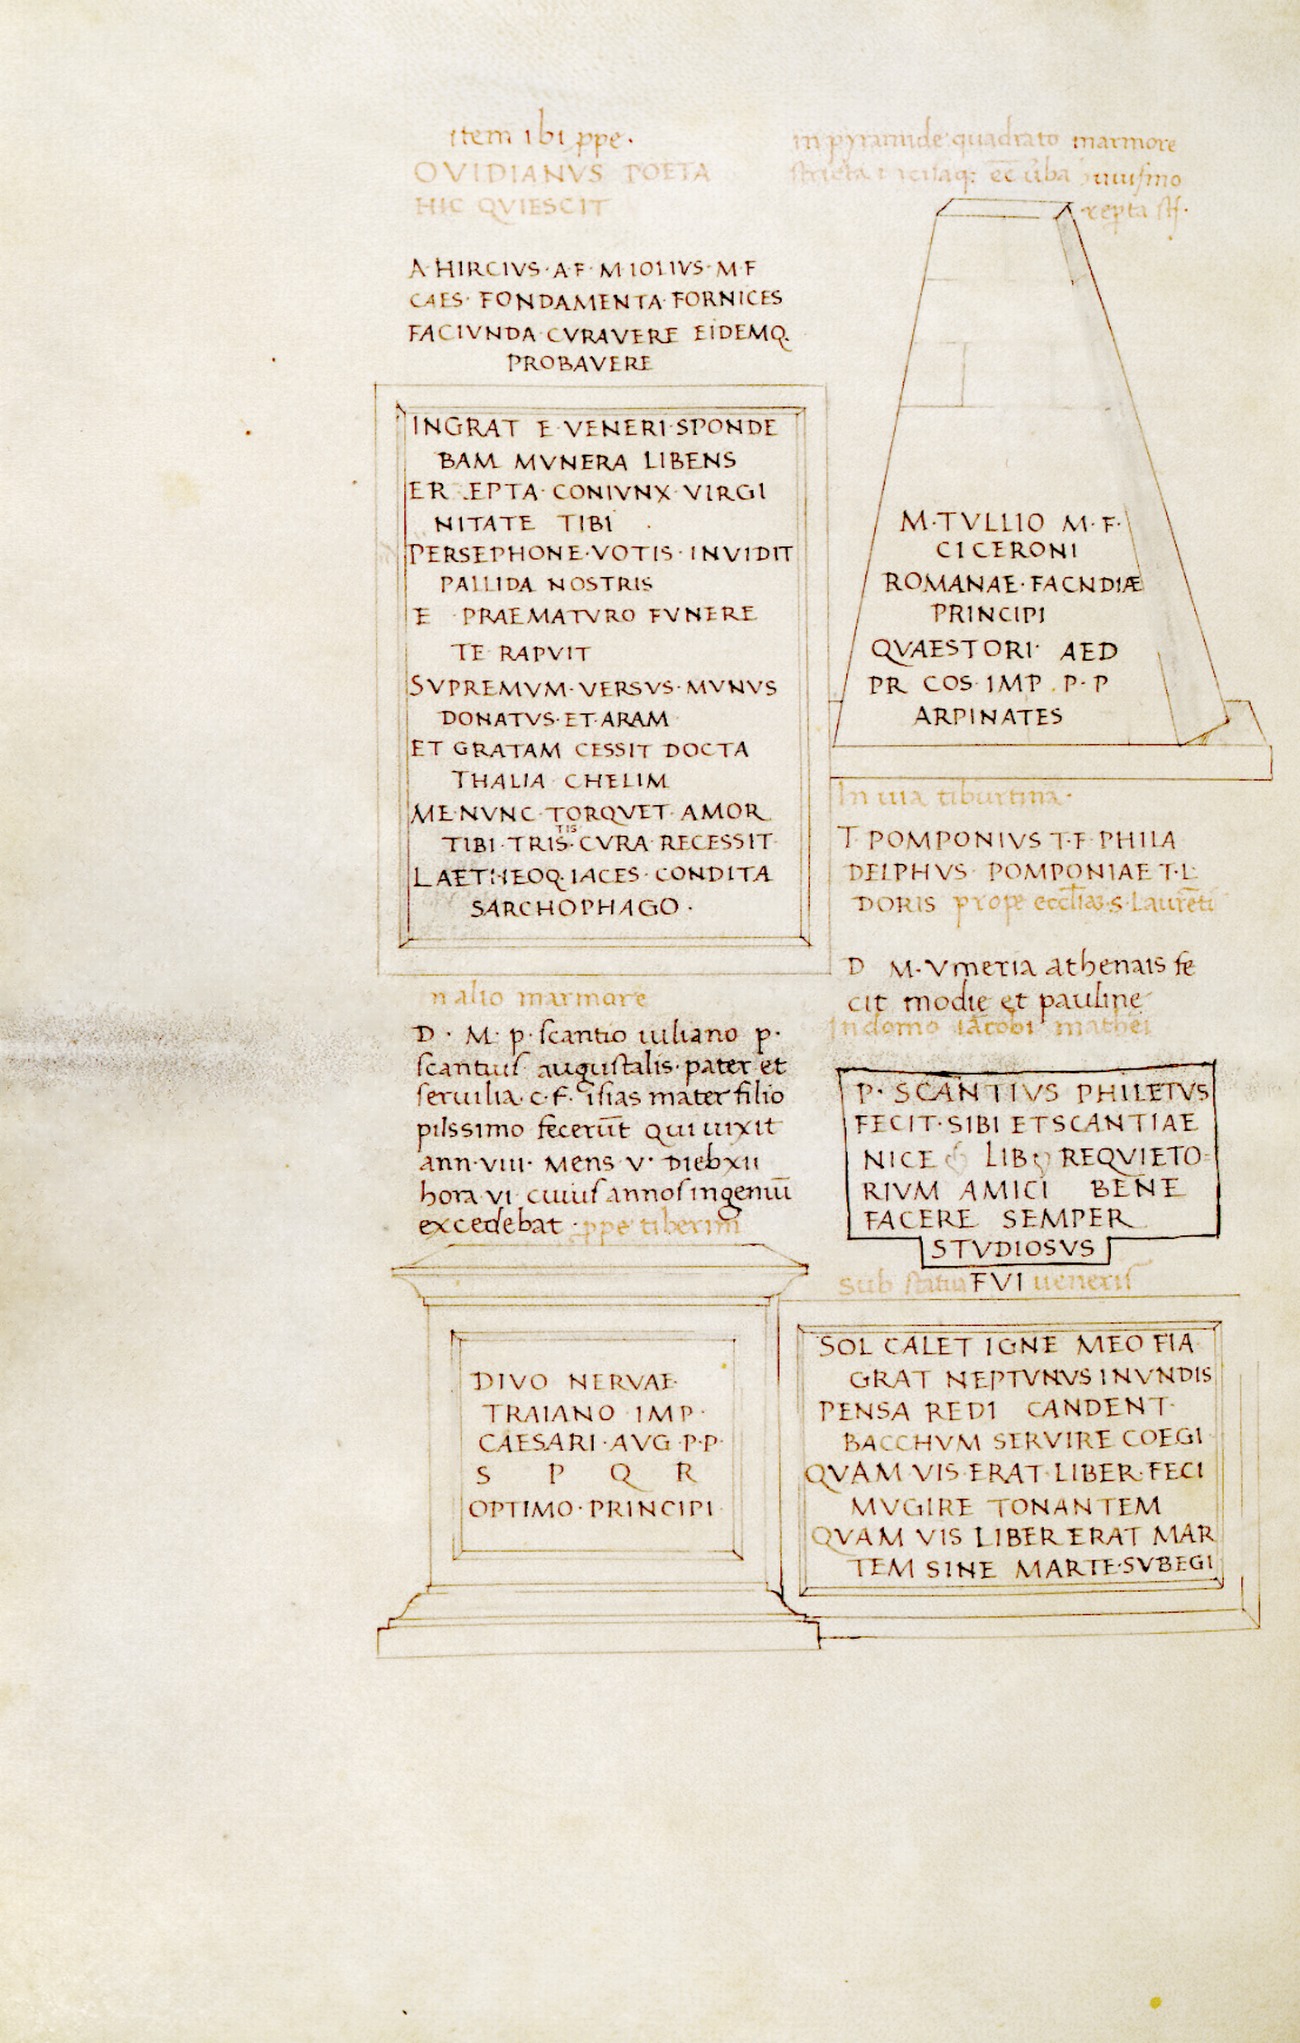 item ibi ppe·
OVIDIANVS POETA
HIC QVIESCIT
A·HIRCIVS·A·F·M·IOLIVS·M·F
CAES· FONDAMENTA·FORNICES
FACIVNDA·CVRAVERE EIDEMQ.
PROBAVERE
INGRAT E·VENERI·SPONDE
BAM MVNERA LIBENS
ER EPTA·CONIVNX·VIRGI
NITATE TIBI
PERSEPHONE·VOTIS·INVIDIT
PALLIDA NOSTRIS
E PRAEMATVRO FVNERE
TE RAPVIT
SVPREMVM·VERSVS·MVNVS
DONATVS·ET·ARAM
ET GRATAM CESSIT DOCTA
THALIA CHELIM
ME·NVNC·TORQVET·AMOR
TIBI·TRISTIS·CVRA·RECESSIT
LAETHEOQ.IACES·CONDITA
SARCHOPHAGO·
n alio marmore
D· M· p·scantio iuliano p·
scantius augustalis·pater et
seruilia·c·f·isias mater filio
piissimo fecerūt qui uixit
ann·viii· mens v· diebxii
hora vi cuius annos ingeniū
excedebat ·ppe tiberim
DIVO NERVAE
TRAIANO IMP·
CAESARI·AVG·P·P·
S P Q R
OPTIMO·PRINCIPI
in pyramide quadrato marmore
repta
M·TVLLIO M·F·
CICERONI
ROMANAE·FACNDIÆ
PRINCIPI
QVAESTORI· AED
PR COS·IMP·P·P
ARPINATES
In uia tiburtina·
T POMPONIVS T·F·PHILA
DELPHVS· POMPONIAE T·L·
DORIS prope s·Laurēti
D M·Vmeria athenais fe
cit modie et pauline
In domo iacobi mathei
P· SCANTIVS PHILETVS
FECIT·SIBI ETSCANTIAE
NICE LIB REQVIETO
RIVM AMICI BENE
FACERE SEMPER
STVDIOSVS
sub statua FVI ueneris
SOL CALET IGNE MEO FIA
GRAT NEPTVNVS INVNDIS
PENSA REDI CANDENT·
BACCHVM SERVIRE COEGI
QVAM·VIS·ERAT·LIBER·FECI
MVGIRE TONANTEM
QVAM VIS LIBER ERAT MAR
TEM SINE MARTE·SVBEGI